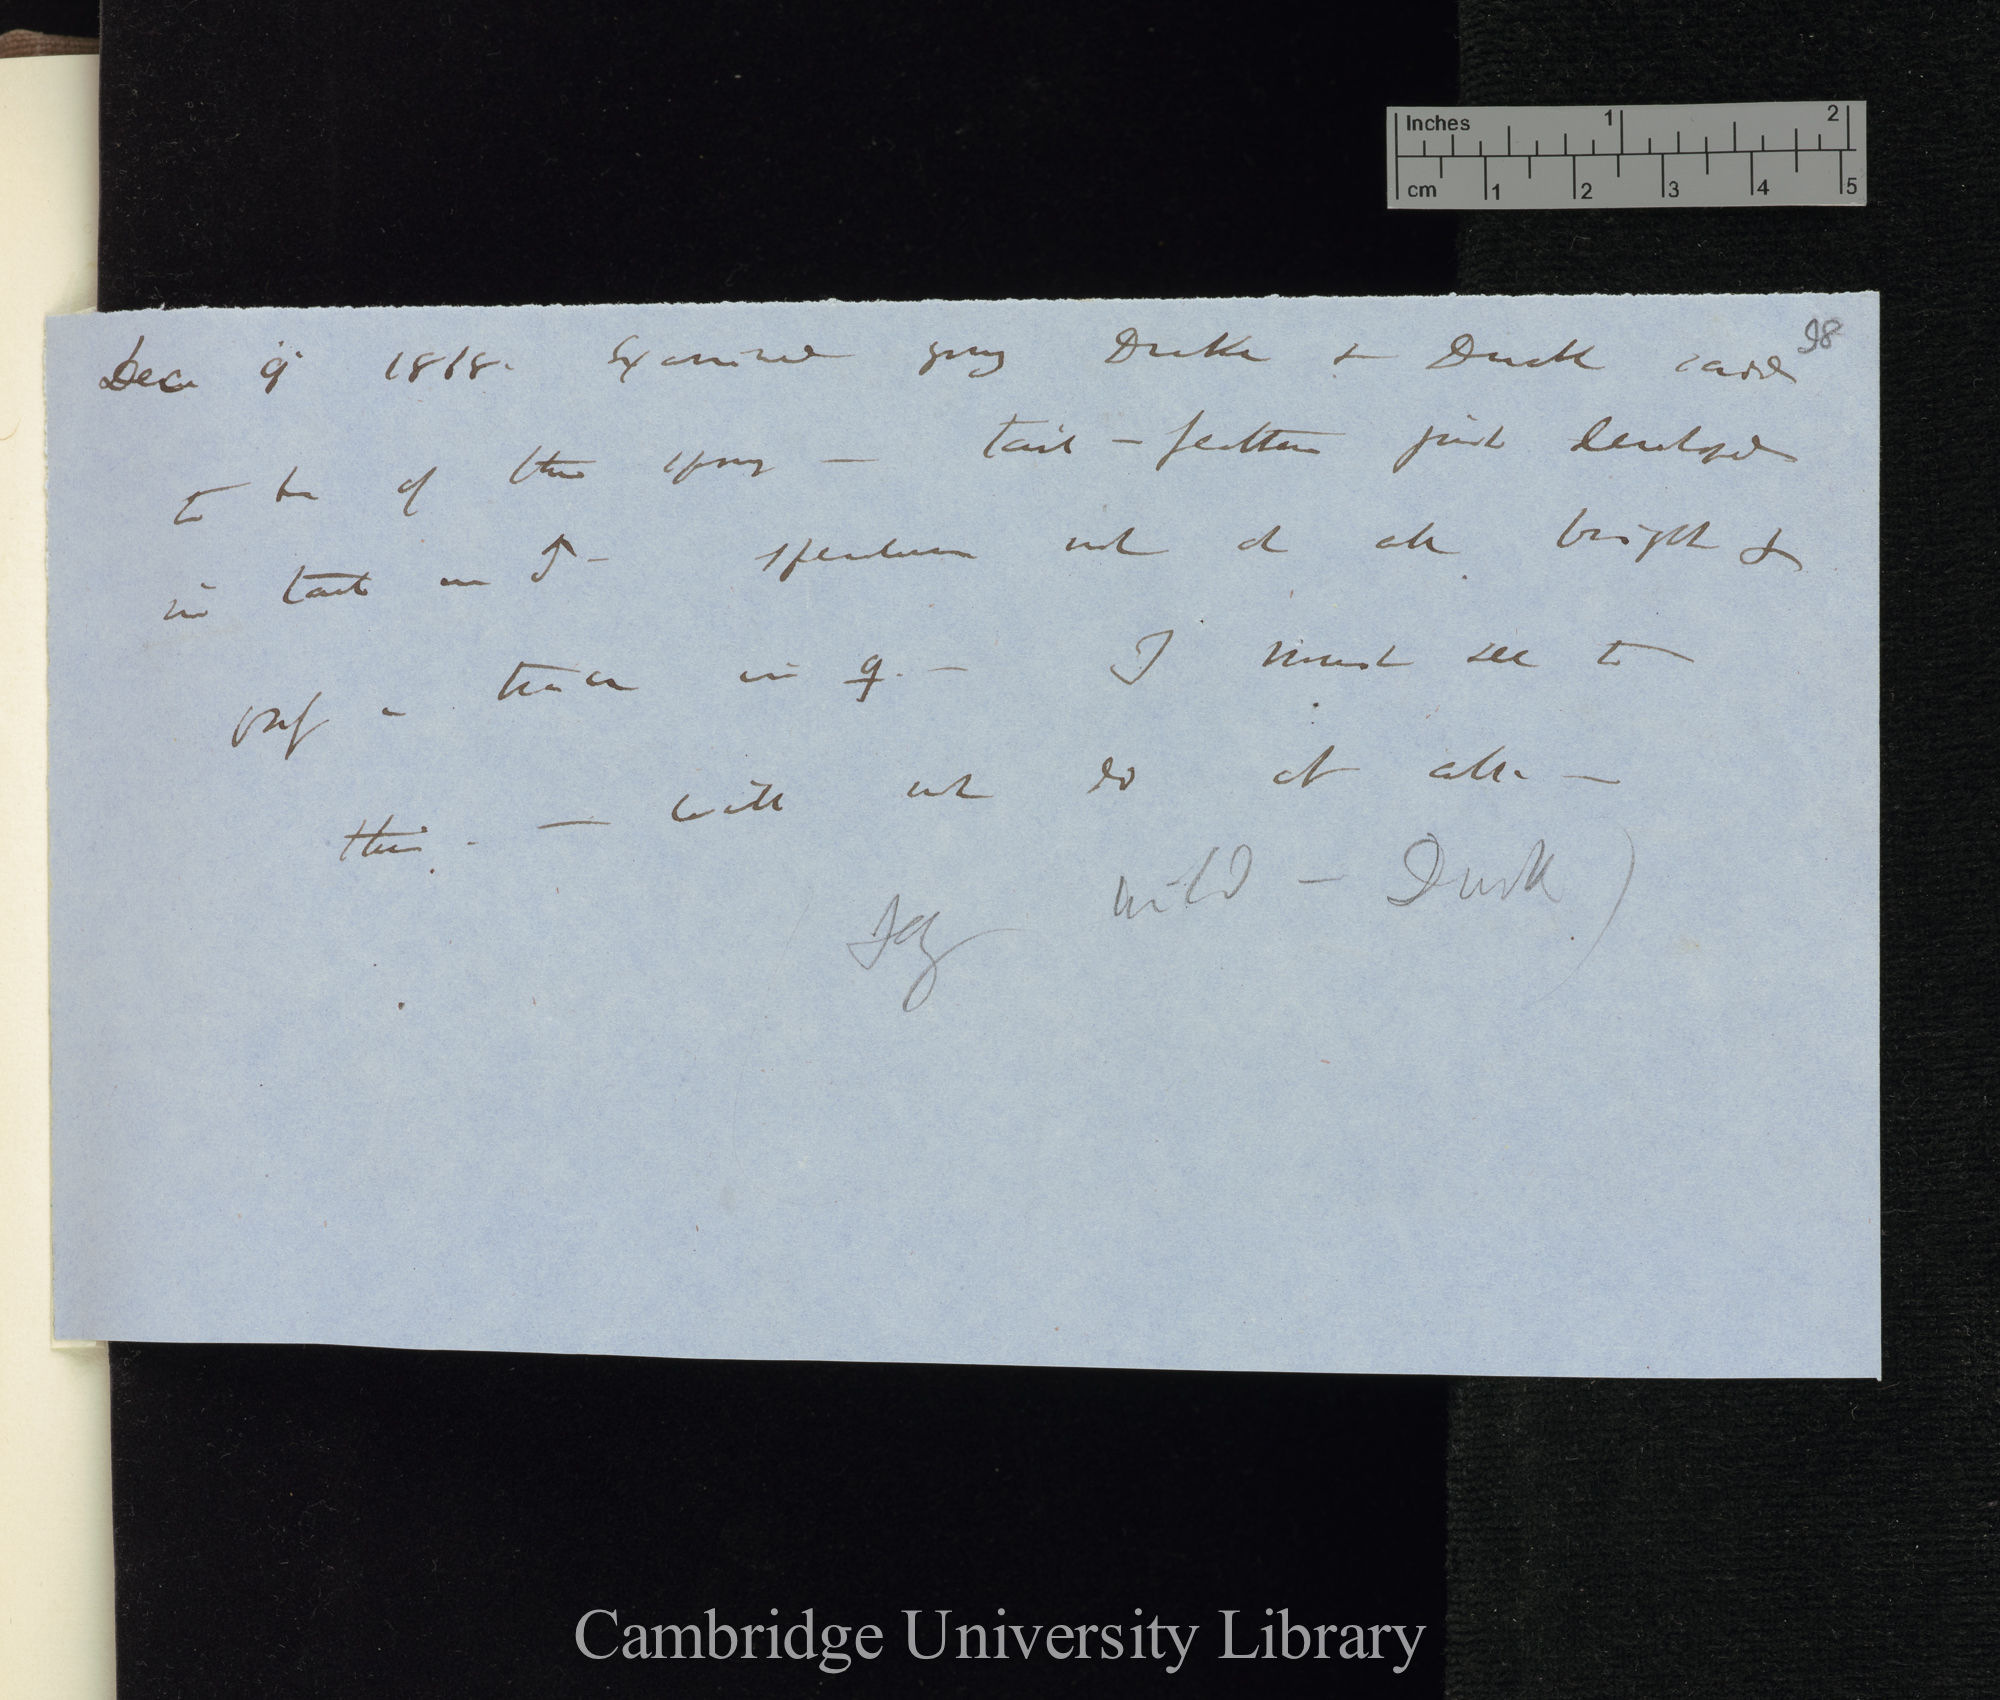 Inches 1 2
cm 1 2 3 4 5
98
Dec 9 1868. Examined young Drake & Duck said
to be of this spring — tail-feathers just developed
in tail in ♂ — speculum not at all bright &
only a trace in ♀. — I must see to
this. — will not do at all. —
wild-Duck)
Cambridge University Library